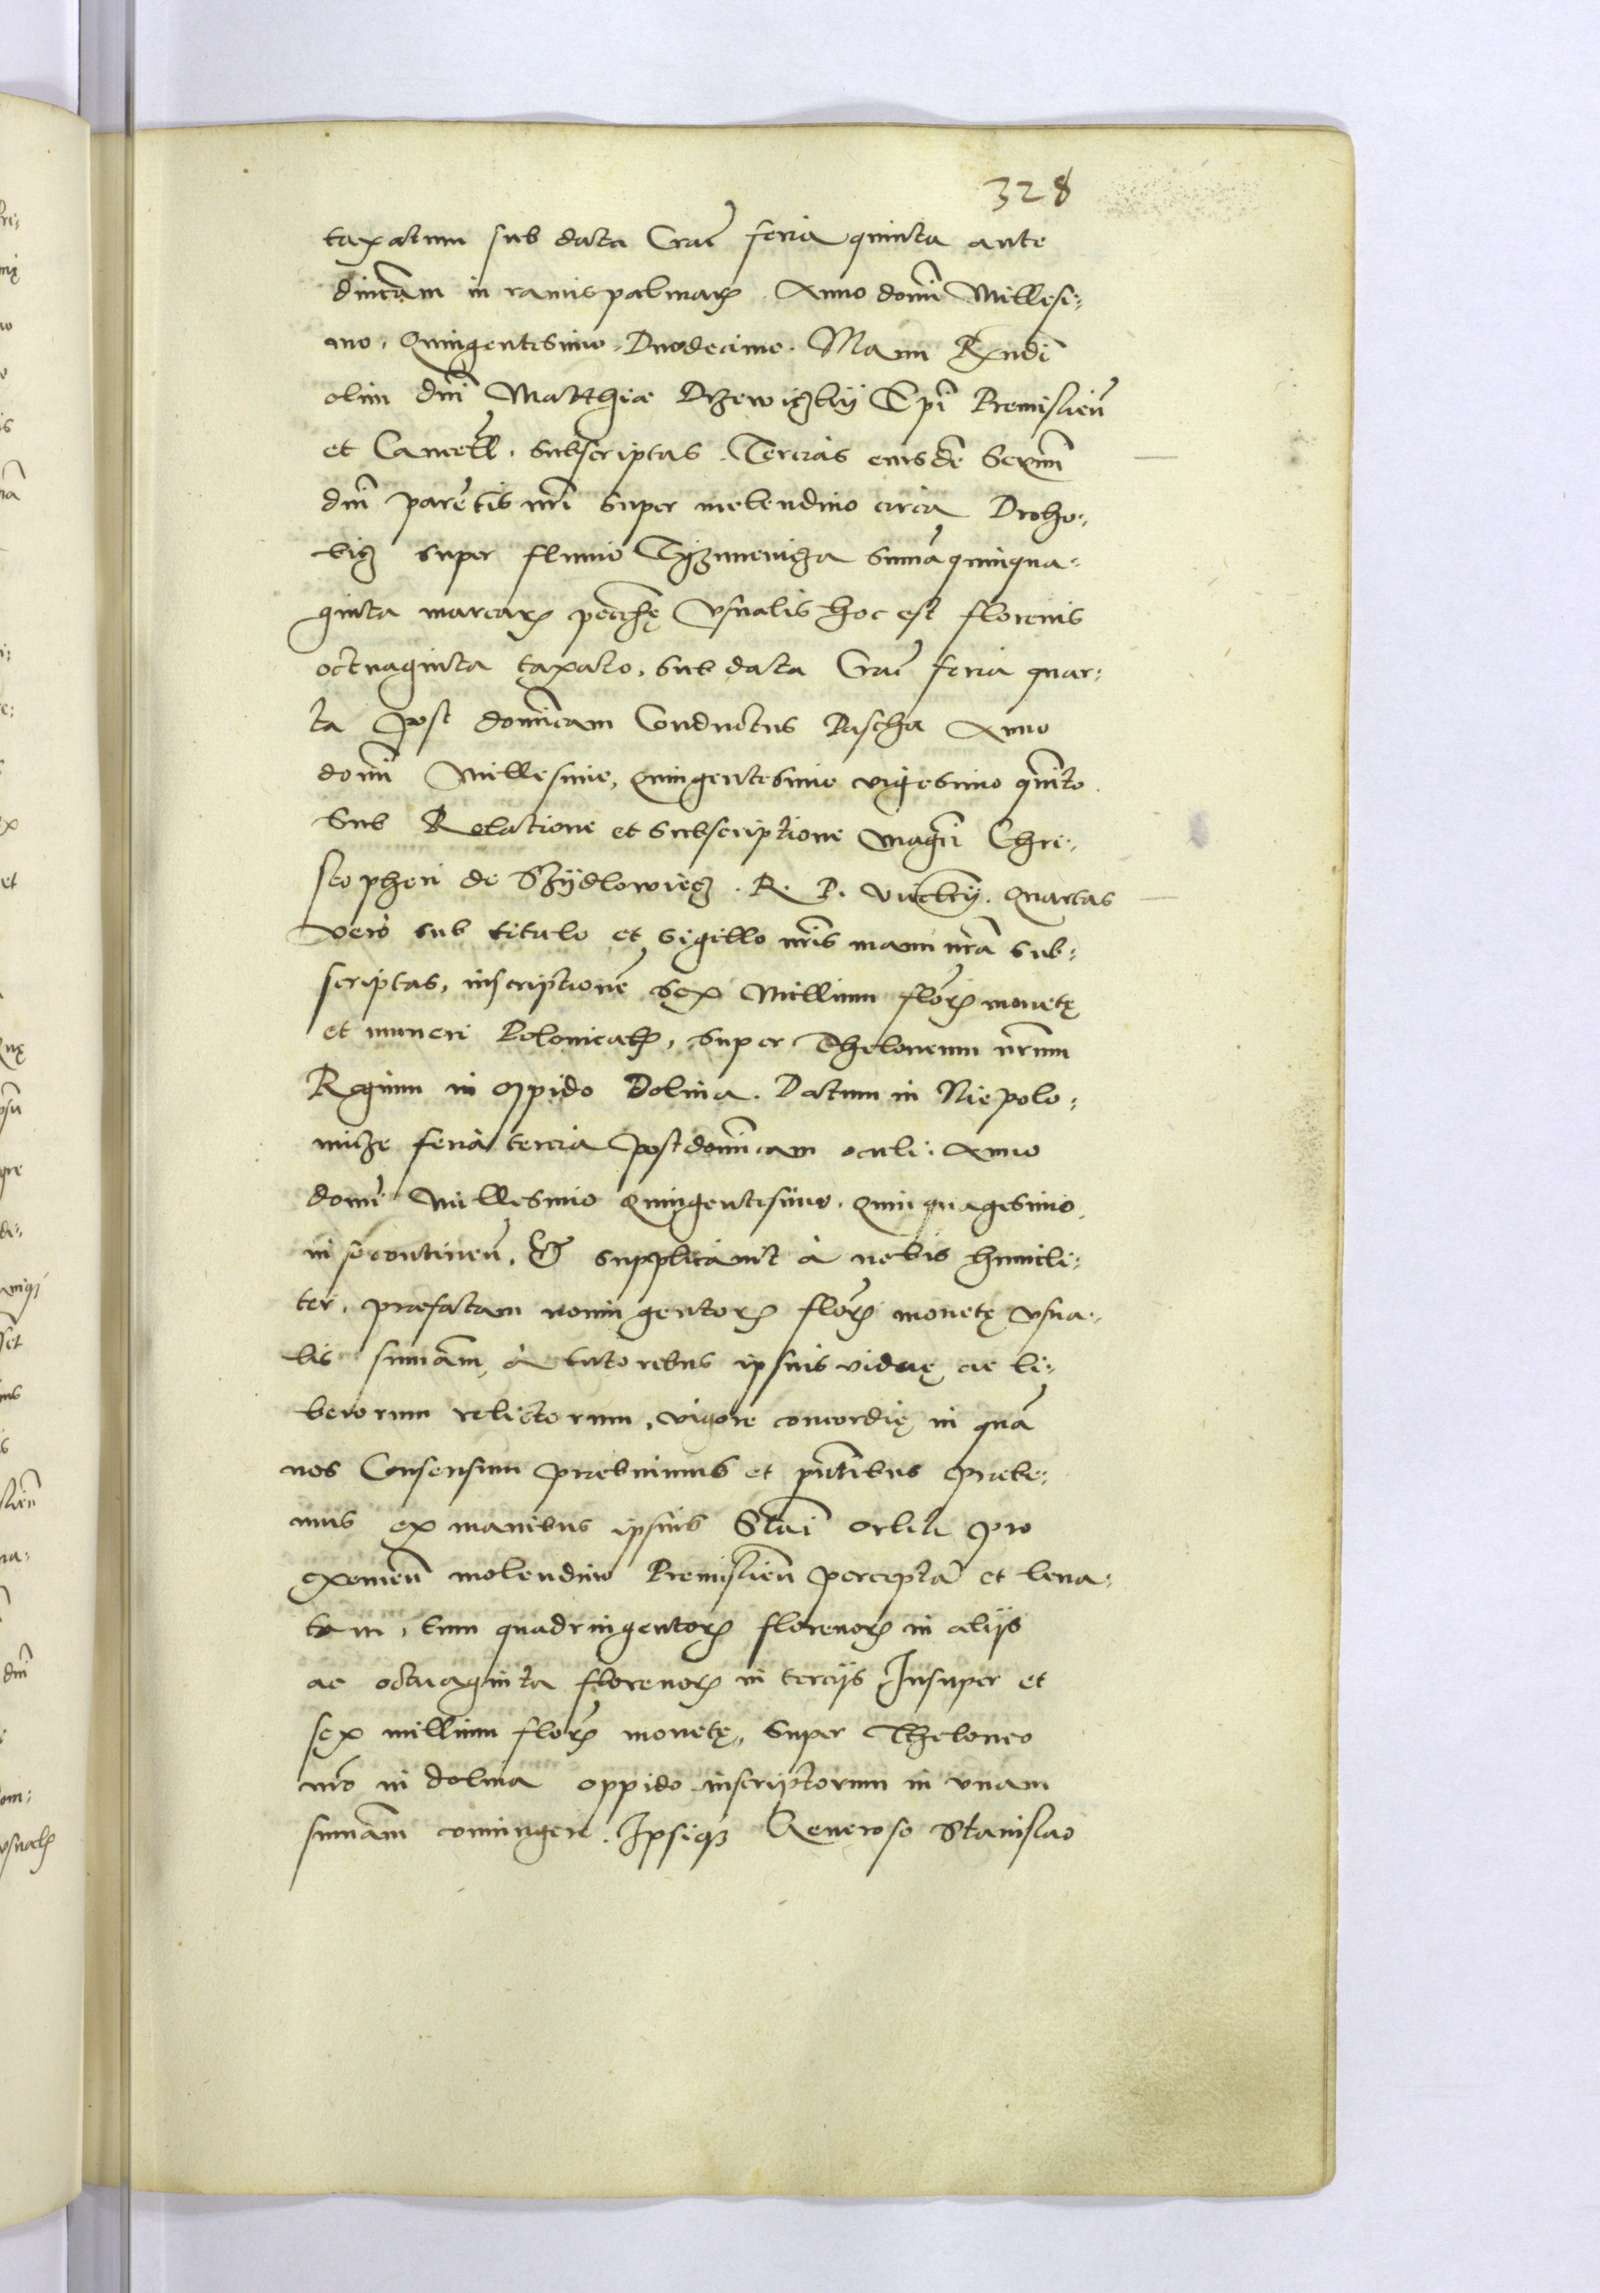 328
taxatum sub data Crac̃ feria quinta ante
dnicam in ramis palmarꝝ. Anno domĩ Millesi:
mo, Quingentesimo, Duodecimo. Manu Rx̃ndi
olim dnĩ Matthiæ Drzewiczkij Epĩ Premislień
et Cancell̃. subscriptas. Tercias eiusdẽ Serm̃i
dnĩ parẽtis nrĩ super molendino circa Droho:
bicz super fluuio Tyzmenicza sum̃a quinqua:
ginta marcarꝝ pecũię vsualis hoc est florenis
octuaginta taxato, sub data Crac̃ feria quar:
ta post domĩcam Conductus Pascha Anno
domĩ Millesimo, Quingentesimo vigesimo quĩto.
Sub Relatione et subscriptione Magcĩ Chri:
stopheri de Schydlowiecz. R. P. vicecãrij. Quartas
vero sub titulo et sigillo nrĩs manu nrã sub:
scriptas, inscriptionẽ sex Millium florꝝ monetę
et numeri Polonicalꝭ, super Theloneum nrũm
Regium in oppido Dolina. Datum in Niepolo:
micze feria tercia post domĩcam oculi. Anno
domĩ Millesimo Quingentesimo. Quinquagesimo
in se continen̄. Et supplicauit à nobis humili:
ter, præfatam nonningentorꝝ florꝝ monetę vsua:
lis sum̃am, à tutoribus ipsius viduę ac li:
berorum relictorum, vigore concordię in quã
nos Consensum prebuimus et pñtibus prebe:
mus ex manibus ipsius Stañi Orlik pro
exemeñ molendino Premislień perceptã et leua:
tam, tum quadringentorꝝ florenorꝝ in alijs
ac octuaginta florenorꝝ in tercijs Insuper et
sex millium florꝝ monetę, super Theloneo
nrõ in dolina oppido inscriptorum in vnam
sum̃am coniungere. Ipsiqꝫ Generoso Stanislao